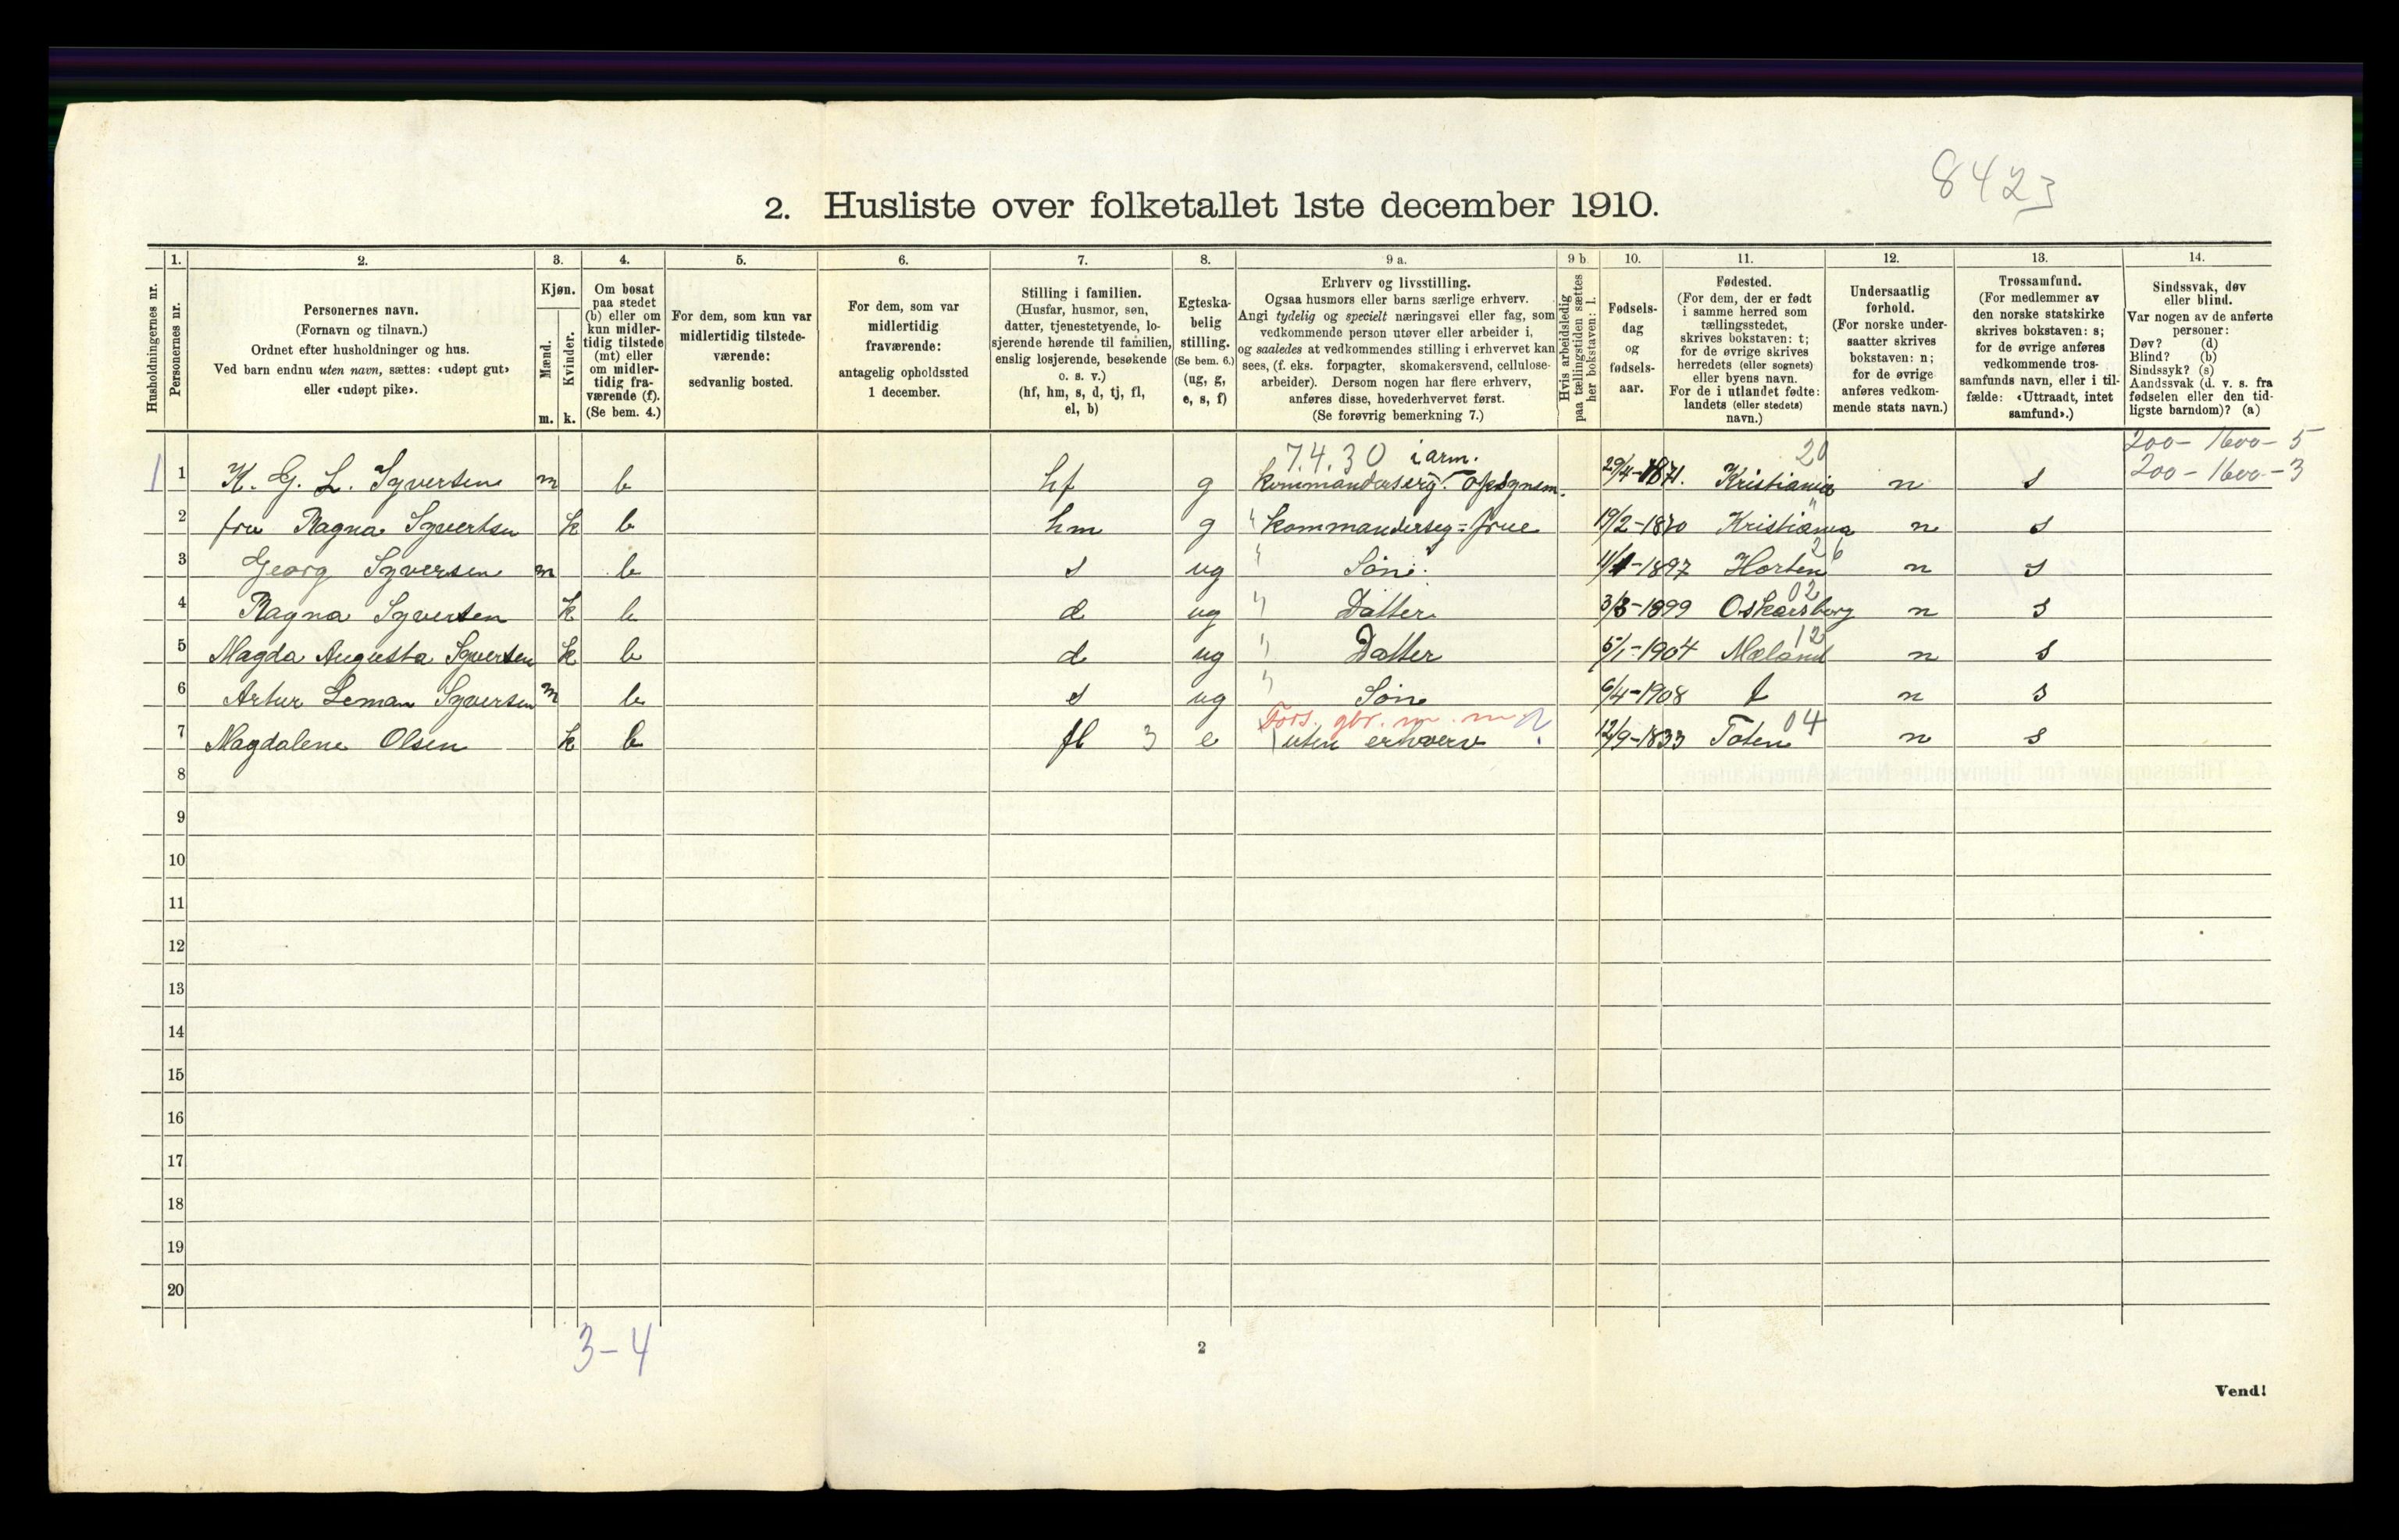 8423
2. Husliste over folketallet 1ste december 1910.
Husholdningernes nr.
1.
Personernes nr.
2.
Personernes navn.
(Fornavn og tilnavn.)
Ordnet efter husholdninger og hus.
Ved barn endnu uten navn, sættes: «udøpt gut»
eller «udøpt pike».
3.
Kjøn.
Mænd.
m.
Kvinder.
k.
4.
Om bosat
paa stedet
(b) eller om
kun midler-
tidig tilstede
(mt) eller
om midler-
tidig fra-
værende (f).
(Se bem. 4.)
5.
For dem, som kun var
midlertidig tilstede-
værende:
sedvanlig bosted.
6.
For dem, som var
midlertidig
fraværende:
antagelig opholdssted
1 december.
7.
Stilling i familien.
(Husfar, husmor, søn,
datter, tjenestetyende, lo-
sjerende hørende til familien,
enslig losjerende, besøkende
o. s. v.)
(hf, hm, s, d, tj, fl,
el, b)
8.
Egteska-
belig
stilling.
(Se bem. 6.)
(ug, g,
e, s, f)
9 a.
Erhverv og livsstilling.
Ogsaa husmors eller barns særlige erhverv.
Angi tydelig og specielt næringsvei eller fag, som
vedkommende person utøver eller arbeider i,
og saaledes at vedkommendes stilling i erhvervet kan
sees, (f. eks. forpagter, skomakersvend, cellulose-
arbeider). Dersom nogen har flere erhverv,
anføres disse, hovederhvervet først.
(Se forøvrig bemerkning 7.)
9 b
Hvis arbeidsledig
paa tællingstiden sættes
her bokstaven: l.
10.
Fødsels-
dag
og
fødsels-
aar.
11.
Fødested.
(For dem, der er født
i samme herred som
tællingsstedet,
skrives bokstaven: t;
for de øvrige skrives
herredets (eller sognets)
eller byens navn.
For de i utlandet fødte:
landets (eller stedets)
navn.)
12.
Undersaatlig
forhold.
(For norske under-
saatter skrives
bokstaven: n;
for de øvrige
anføres vedkom-
mende stats navn.)
13.
Trossamfund.
(For medlemmer av
den norske statskirke
skrives bokstaven: s;
for de øvrige anføres
vedkommende tros-
samfunds navn, eller i til-
fælde: «Uttraadt, intet
samfund».)
14.
Sindssvak, døv
eller blind.
Var nogen av de anførte
personer:
Døv? (d)
Blind? (b)
Sindssyk? (s)
Aandssvak (d. v. s. fra
fødselen eller den tid-
ligste barndom)? (a)
7.4.30 i arm. 20 200 - 1600 - 5
1 1 K. G. L. Syversen m b hf g kommanderserg. opsynsm. 29/4-1871. Kristiania n s 200 - 1600 - 3
2 fru Ragna Syvertsen k b hm g " kommanderserg = frue 19/2-1870 Kristiania n s
3 Georg Syversen m b s ug " Søn 11/1-1897 Horten n s
02
4 Ragna Syversen k b d ug " Datter 3/3-1899 Oskarsborg n s
12
5 Magda Augusta Syversen k b d ug " Datter 5/1-1904 Mæland n s
6 Artur Leman Syversen m b s ug " Søn 6/4-1908 t n s
Fors. gbr. m. m 04
7 Magdalene Olsen k b fl 3 e uten erhverv 12/9-1833 Toten n s
8
9
10
11
12
13
14
15
16
17
18
19
20
3-4
2
Vend!